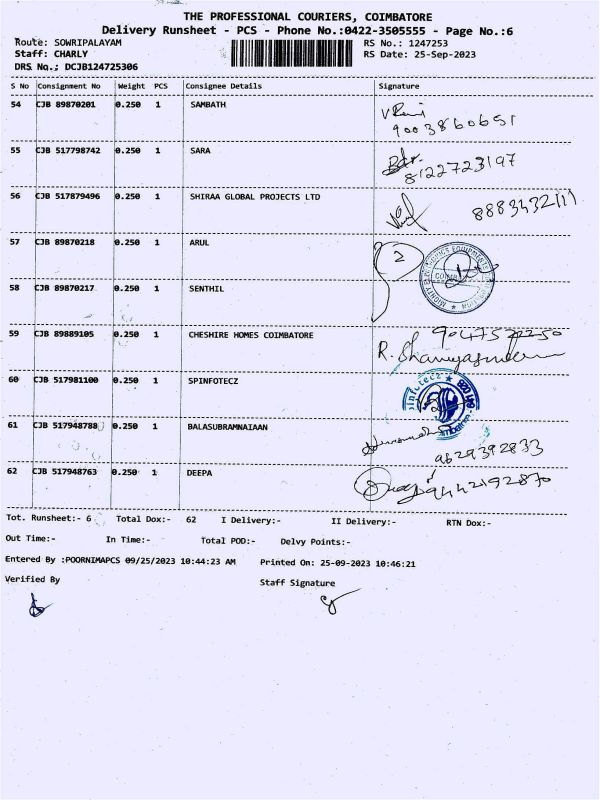 THE PROFESSIONAL COURIERS, COIMBATORE
Delivery Runsheet - PCS - Phone No.:0422-3505555 - Page No.:6
Route: SOWRIPALAYAM RS No.: 1247253
Staff: CHARLY RS Date: 25-Sep-2023
DRS No.; DCJB124725306
S No Consignment No Weight PCS Consignee Details Signature
54 CJB 89870201 0.250 1 SAMBATH
9003860651
55 CJB 517798742 0.250 1 SARA
8122723197
56 CJB 517879496 0.250 1 SHIRAA GLOBAL PROJECTS LTD
57 CJB 89870218 0.250 1 ARUL 2
58 CJB 89870217 0.250 1 SENTHIL
59 CJB 89889105 0.250 1 CHESHIRE HOMES COIMBATORE
60 CJB 517981100 0.250 1 SPINFOTECZ
61 CJB 517948788 0.250 1 BALASUBRAMNAIAAN
9629392833
62 CJB 517948763 0.250 1 DEEPA 9442192870
Tot. Runsheet:- 6 Total Dox:- 62 I Delivery:- II Delivery:- RTN Dox:-
Out Time:- In Time:- Total POD:- Delvy Points:-
Entered By :POORNIMAPCS 09/25/2023 10:44:23 AM Printed On: 25-09-2023 10:46:21
Verified By Staff Signature